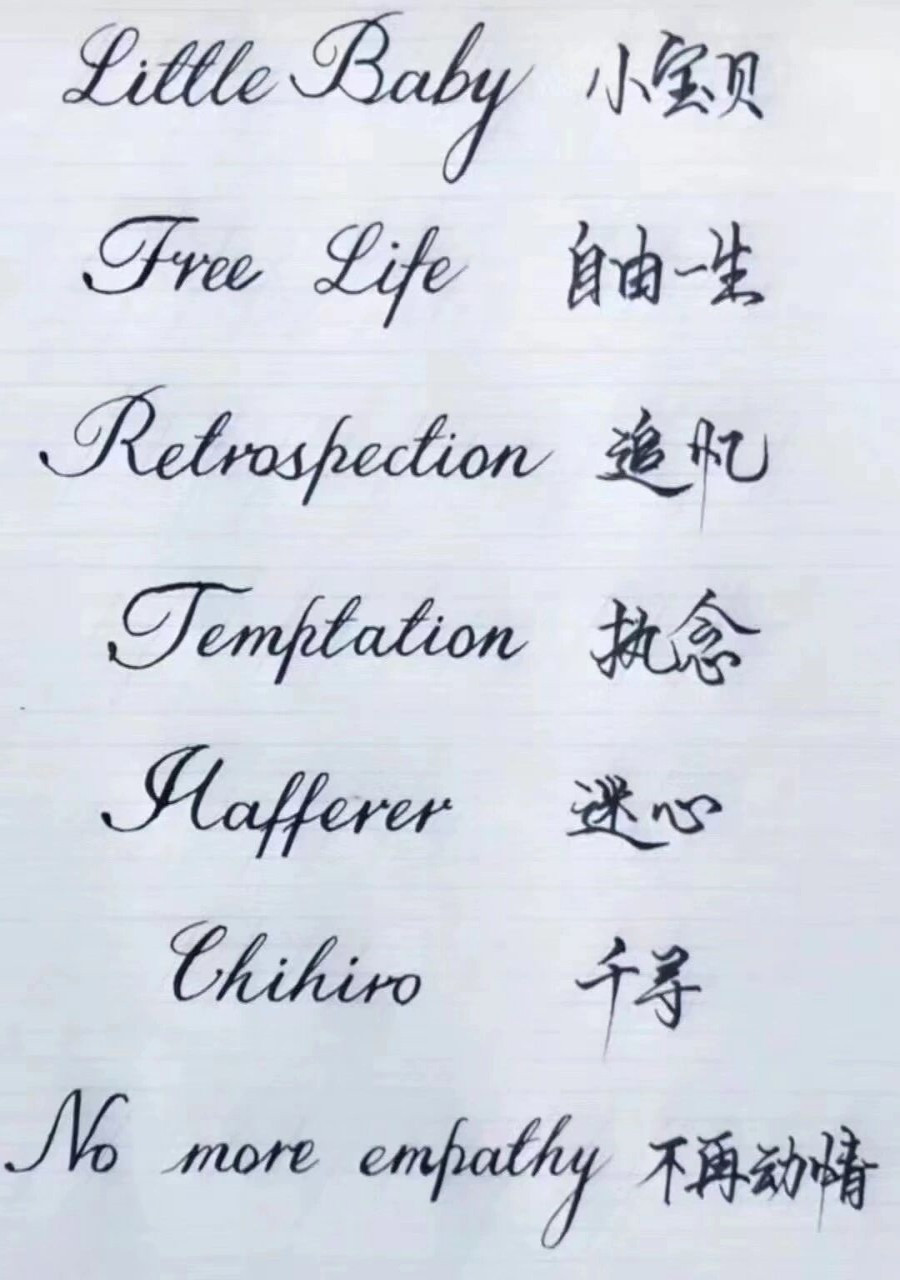 Little Baby 小宝贝
Free Life 自由一生
Retrospection 追忆
Temptation 执念
Hafferer 迷心
Chihiro 千寻
No more empathy 不再动情